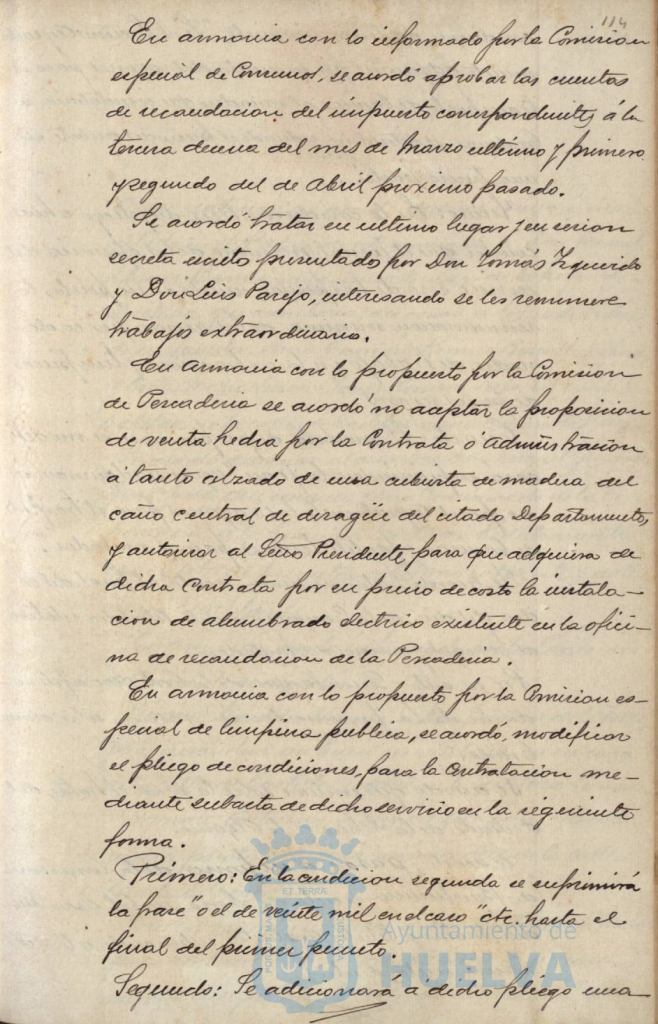 114
En armonia con lo informado por la Comision
especial de Consumos, se acordó aprobar las cuentas
de recaudacion del impuesto correspondientes á la
tercera decena del mes de Marzo ultimo y primera
y segundo del de Abril proximo pasado.
Se acordó tratar en ultimo lugar y en sesion
secreta escrito presentado por Don Tomás Izquierdo
y Don Luis Parejo, interesando se les remunere
trabajos extraordinarios.
En armonia con lo propuesto por la Comision
de Pescaderia se acordó no aceptar la proposicion
de venta hecha por la Contrata ó administracion
á tanto alzado de una cubierta de madera del
caño central de desagüe del citado Departamento,
y autorizar al Señor Presidente para que adquiera de
dicha Contrata por su precio de costo la instala-
cion de alumbrado electrico existente en la ofici-
na de recaudacion de la Pescaderia.
En armonia con lo propuesto por la Comision es-
pecial de limpieza publica, se acordó, modificar
el pliego de condiciones, para la contratacion me-
diante subasta de dicho servicio en la siguiente
forma.
Primero: En la condicion segunda se suprimirá
la frase "o el de veinte mil en el caso" etc. hasta el
final del primer punto.
Segundo: Se adicionará a dicho pliego una
ET TERRAE
Ayuntamiento de
HUELVA